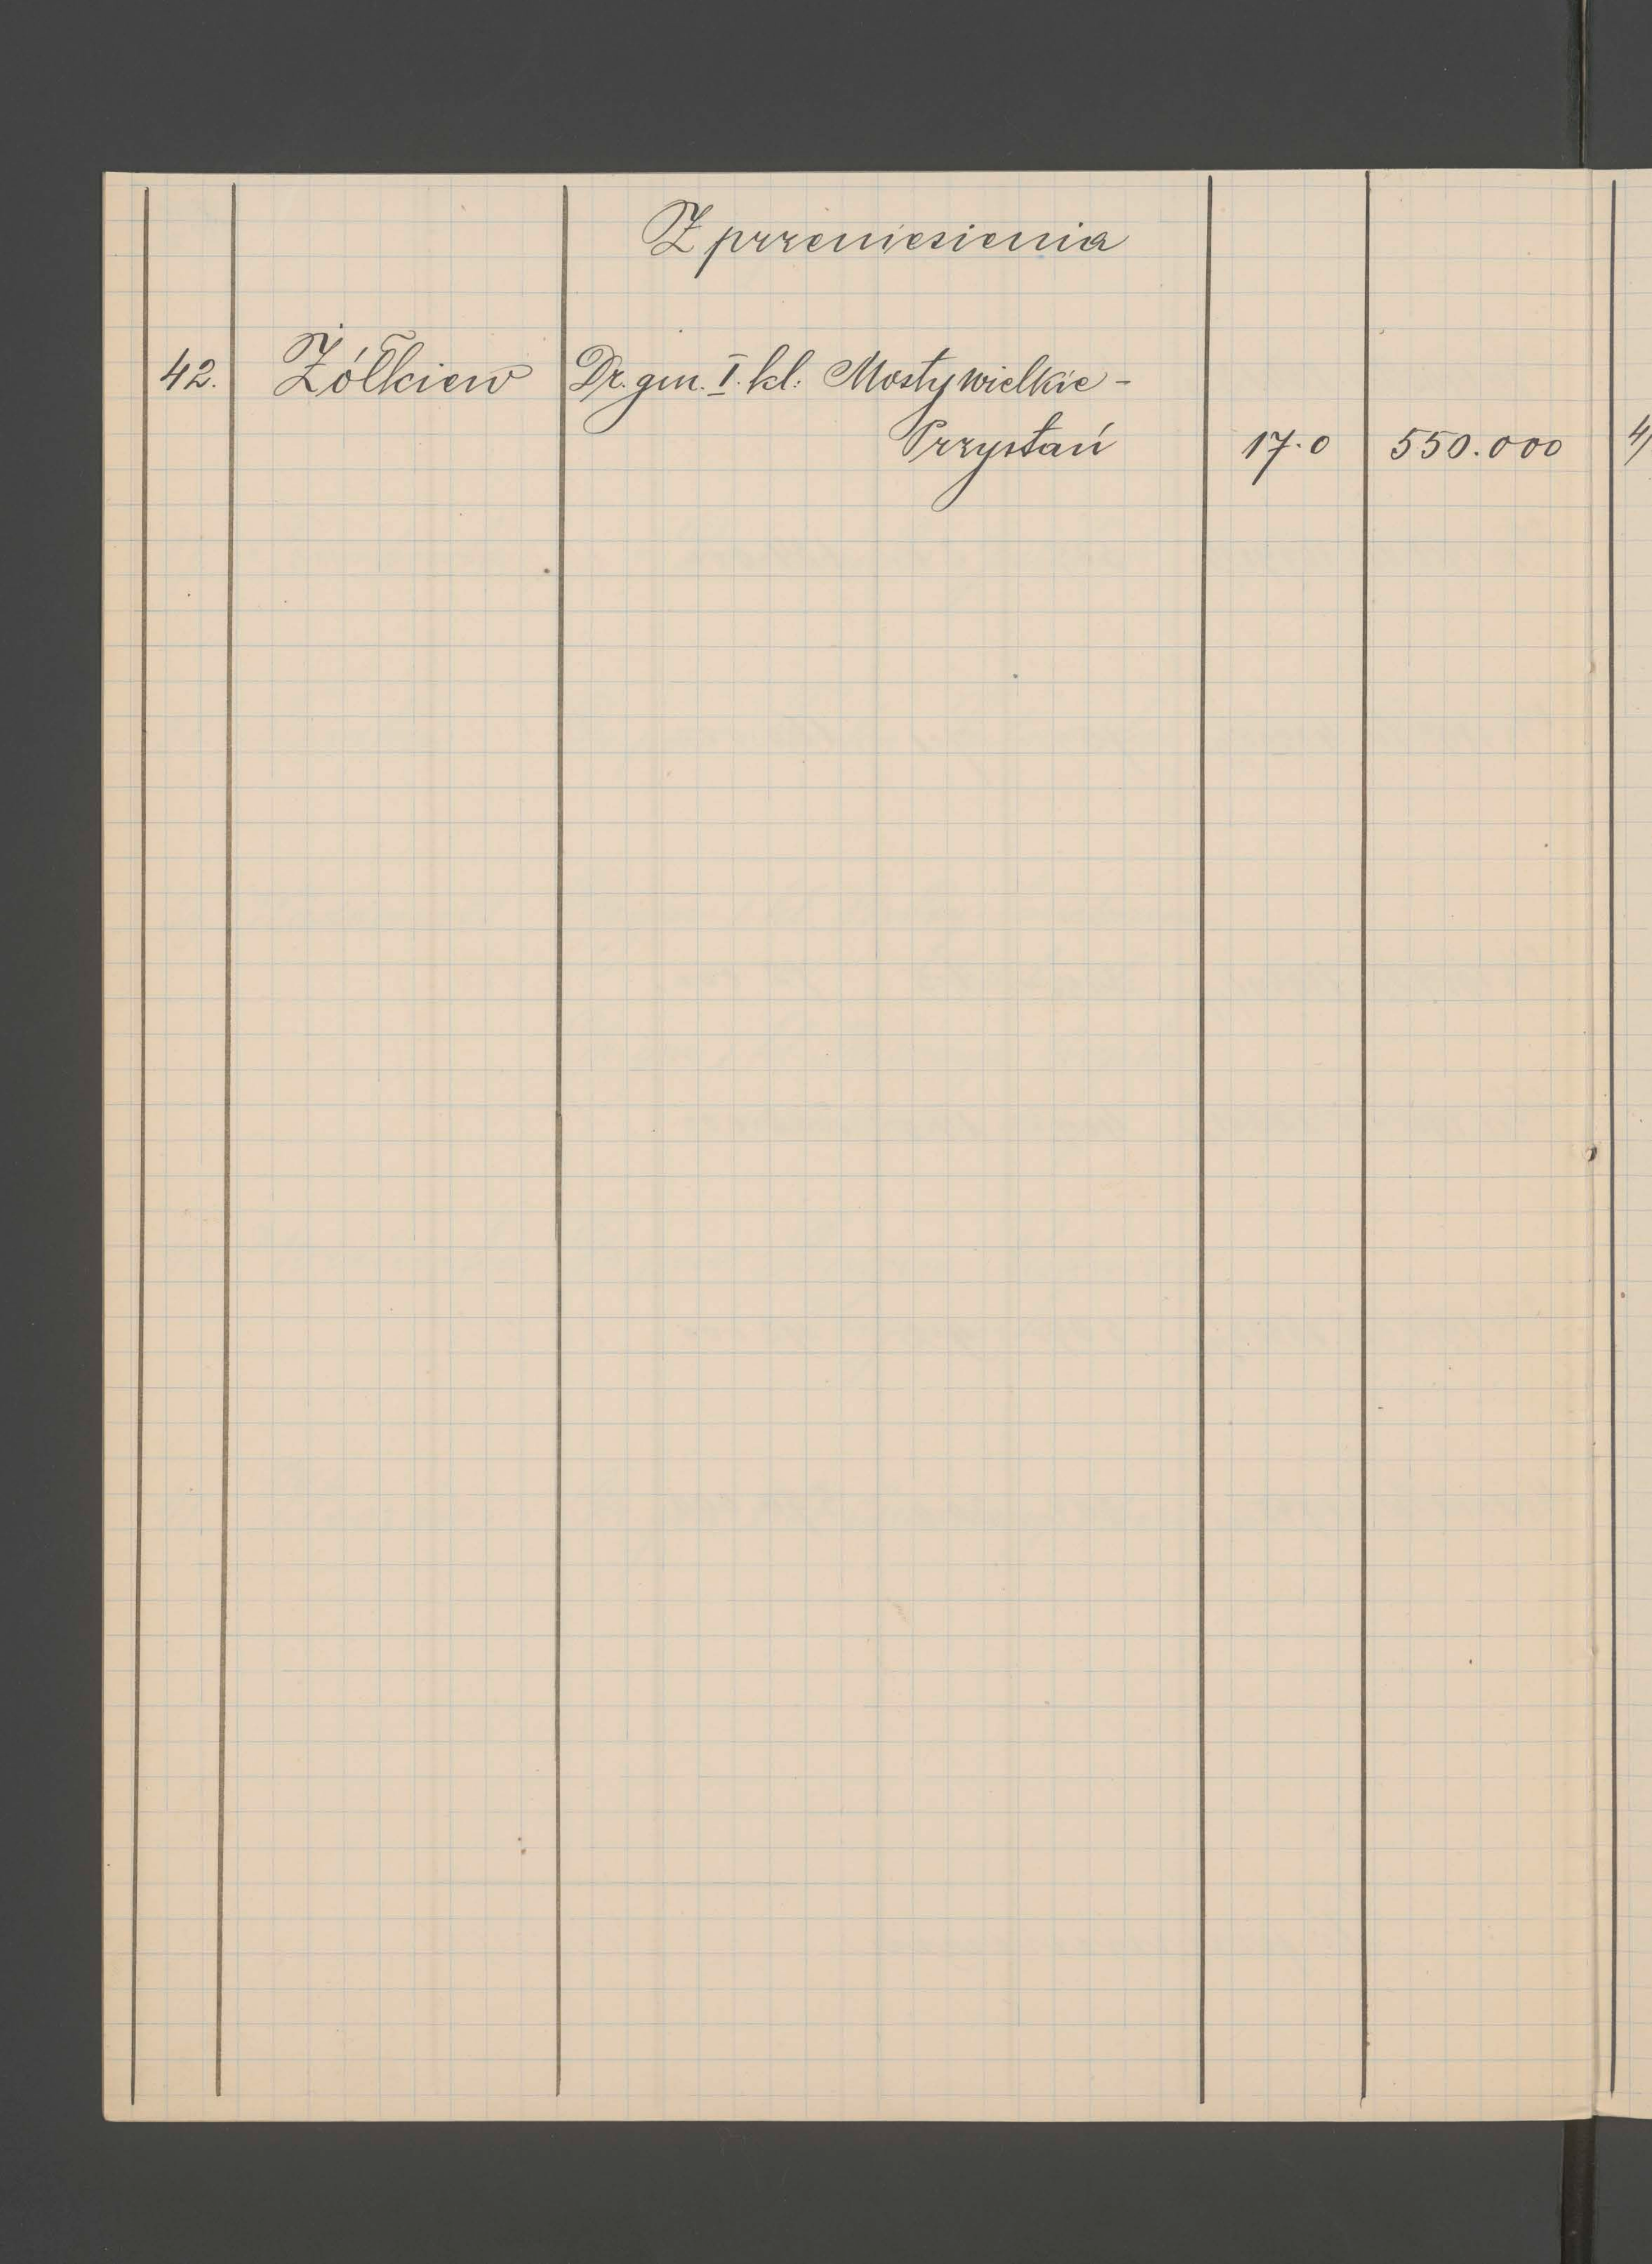 Z przeniesienia
42. Żółkiew Dr. gm. I. kl. Mosty wielkie -
Przystań 17.0 550.000